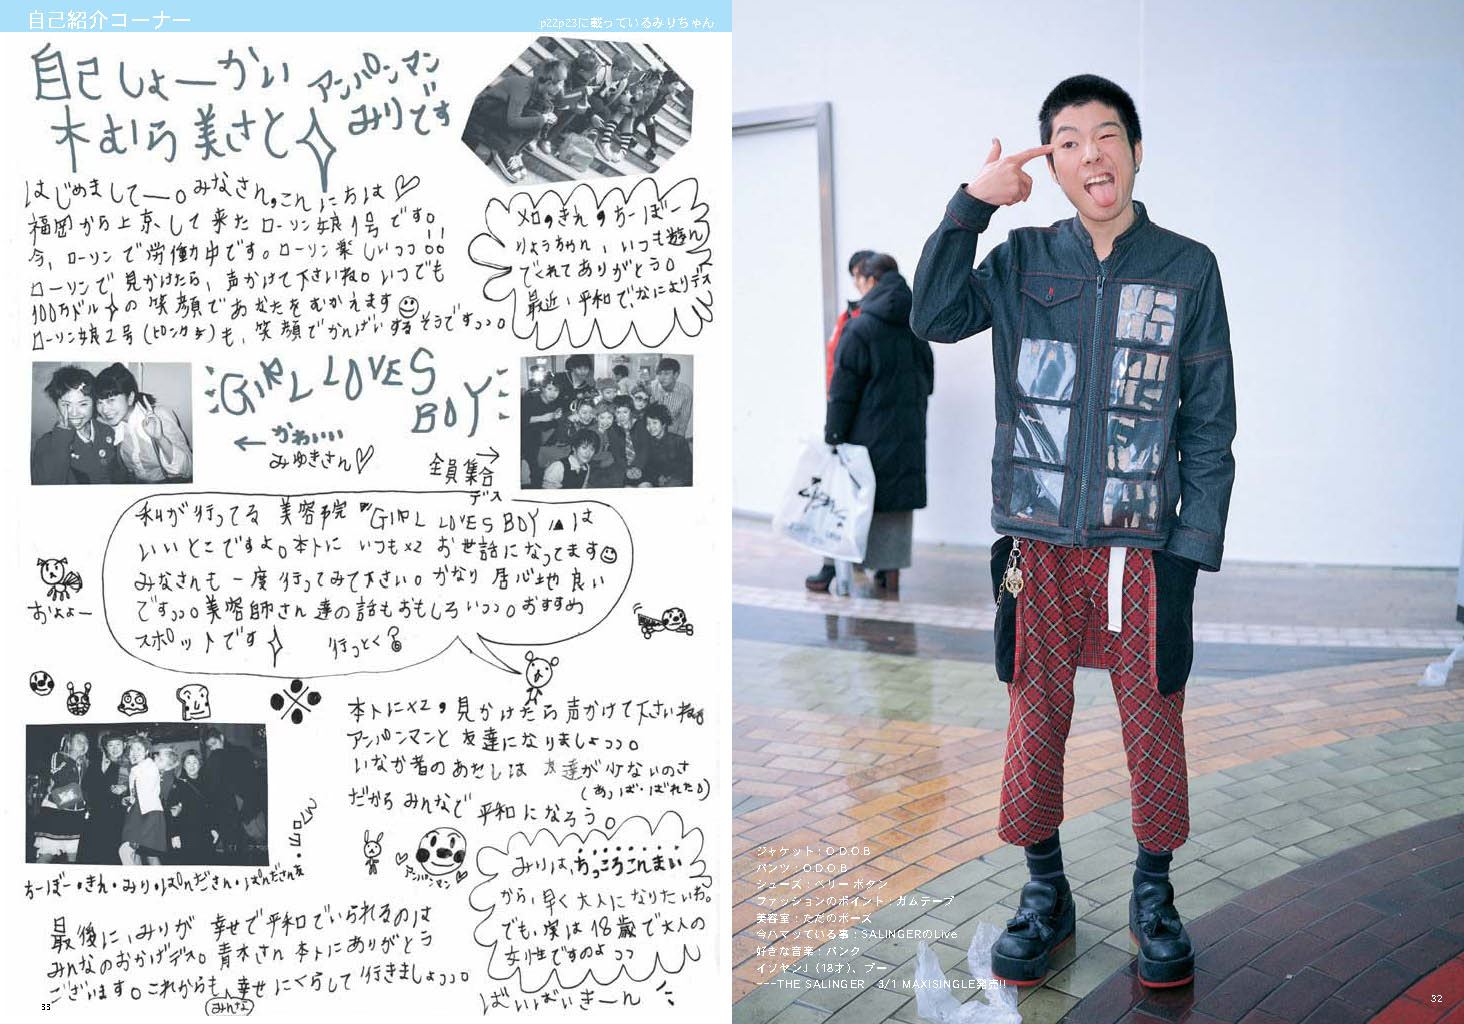 自己紹介コーナー
p22p23に載っているみりちゃん
自己しょーかい
アンパンマン
木むら美さと
みりです
はじめましてー。みなさん,こんにちは♡
福岡から上京して来たローソン娘1号です。
今,ローソンで労働中です。ローソン楽しいっっ!!
ローソンで見かけたら,声かけて下さいね。いつでも
100万ドルの笑顔であなたをむかえます
ローソン娘2号(ピンクチ)も,笑顔でかんげいするそうですっっ。
メロ,きん,ちーぼー
りょうちゃん,いつも遊ん
でくれてありがとう。
最近,平和で,なによりデス
GIRL LOVES
BOY
←かわいい
みゆきさん♡
全員集合→
デス
私が行ってる美容院『GIRL LOVES BOY』は
いいとこですよ。本トにいつも×2お世話になってます
みなさんも一度行ってみて下さい。かなり居心地良い
ですっっ。美容師さん達の話もおもしろいっっ。おすすめ
スポットです 行っとく?
およよー
本トに×2,見かけたら声かけて下さいね。
アンパンマンと友達になりましょっっ。
いなか者のあたしは友達が少ないのさ
(あっ,ば・ばれた。)
だからみんなで平和になろう。
アンパンマン
ちーぼー・きん・みり・ぱんださん・ぱんださん友
みりは,ちっころこんまい
から,早く大人になりたいわ。
でも,実は18歳で大人の
女性ですのよっっ
最後に,みりが幸せで平和でいられるのは
みんなのおかげデス。青木さん本トにありがとう
ございます。これからも幸せにくらして行きましょっっ。
みんなな
ばいばいきーん
33
ジャケット：O.D.O.B
パンツ：O.D.O.B
シューズ：ベリー ボタン
ファッションのポイント：ガムテープ
美容室：ただのボーズ
今ハマッている事：SALINGERのLive
好きな音楽：パンク
イソヤンJ（18才）、プー
---THE SALINGER 3/1 MAXISINGLE発売!!
32